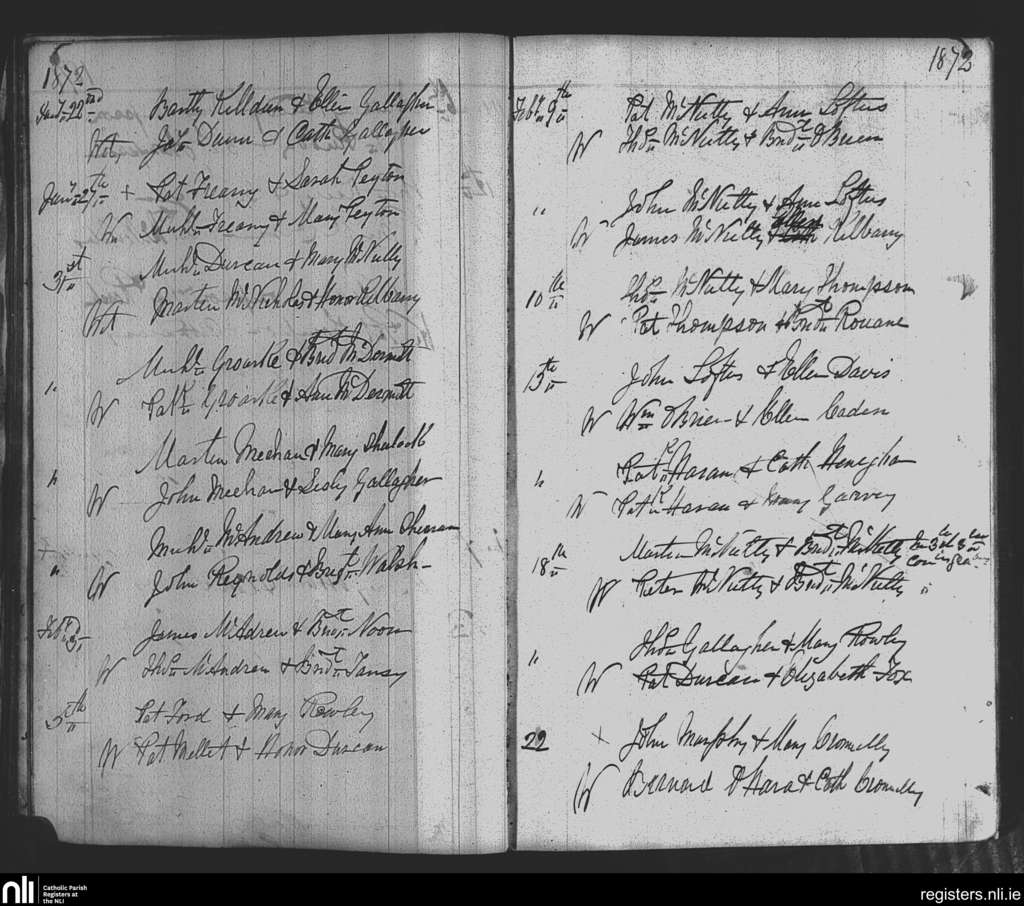 1872
Jany 22nd Bartly Killdun & Ellen Gallagher
Wit Jas Dunn & Cath Gallagher
Jany 27th + Pat Freany & Sarah Peyton
W Michl Freany & Mary Peyton
31st Michl Durcan & Mary McNulty
Wt Martin McNicholas & Honor Kilbany
" Michl Groarke & Bridt McDermott
W Patk Groarke & Ann McDermott
" Martin Meehan & Mary
W John Meehan & Sisly Gallagher
" Michl McAndrew & Mary Ann
W John Reynolds & Brigt Walsh
Feby 3 James McAdrew & Bridt Noon
W Thos McAndrew & Bridt Tansy
5th Pat Ford & Mary Rowley
W Pat Mellet & Honor Durcan
1872
Feby 9th Pat McNulty & Ann Loftus
W Thos McNulty & Bridt OBrien
" John McNulty & Ann Loftus
W James McNulty & Ellen Kilbany
10th Thos McNulty & Mary Thompson
W Pat Thompson & Bridt Rouane
13th John Loftus & Ellen Davis
W Wm OBrien & Ellen Caden
" Patk Haran & Cath Heneghan
W Patk Haran & Mary Garvey
18th Martin McNulty & Bridt McNulty
W Peter McNulty & Bridt McNulty "
" Thos Gallagher & Mary Rowley
W Pat Durcan & Elizabeth Fox
22 + John Murphy & Mary Cromelly
W Bernard OHara & Cath Cromelly
nli Catholic Parish Registers at the NLI
registers.nli.ie